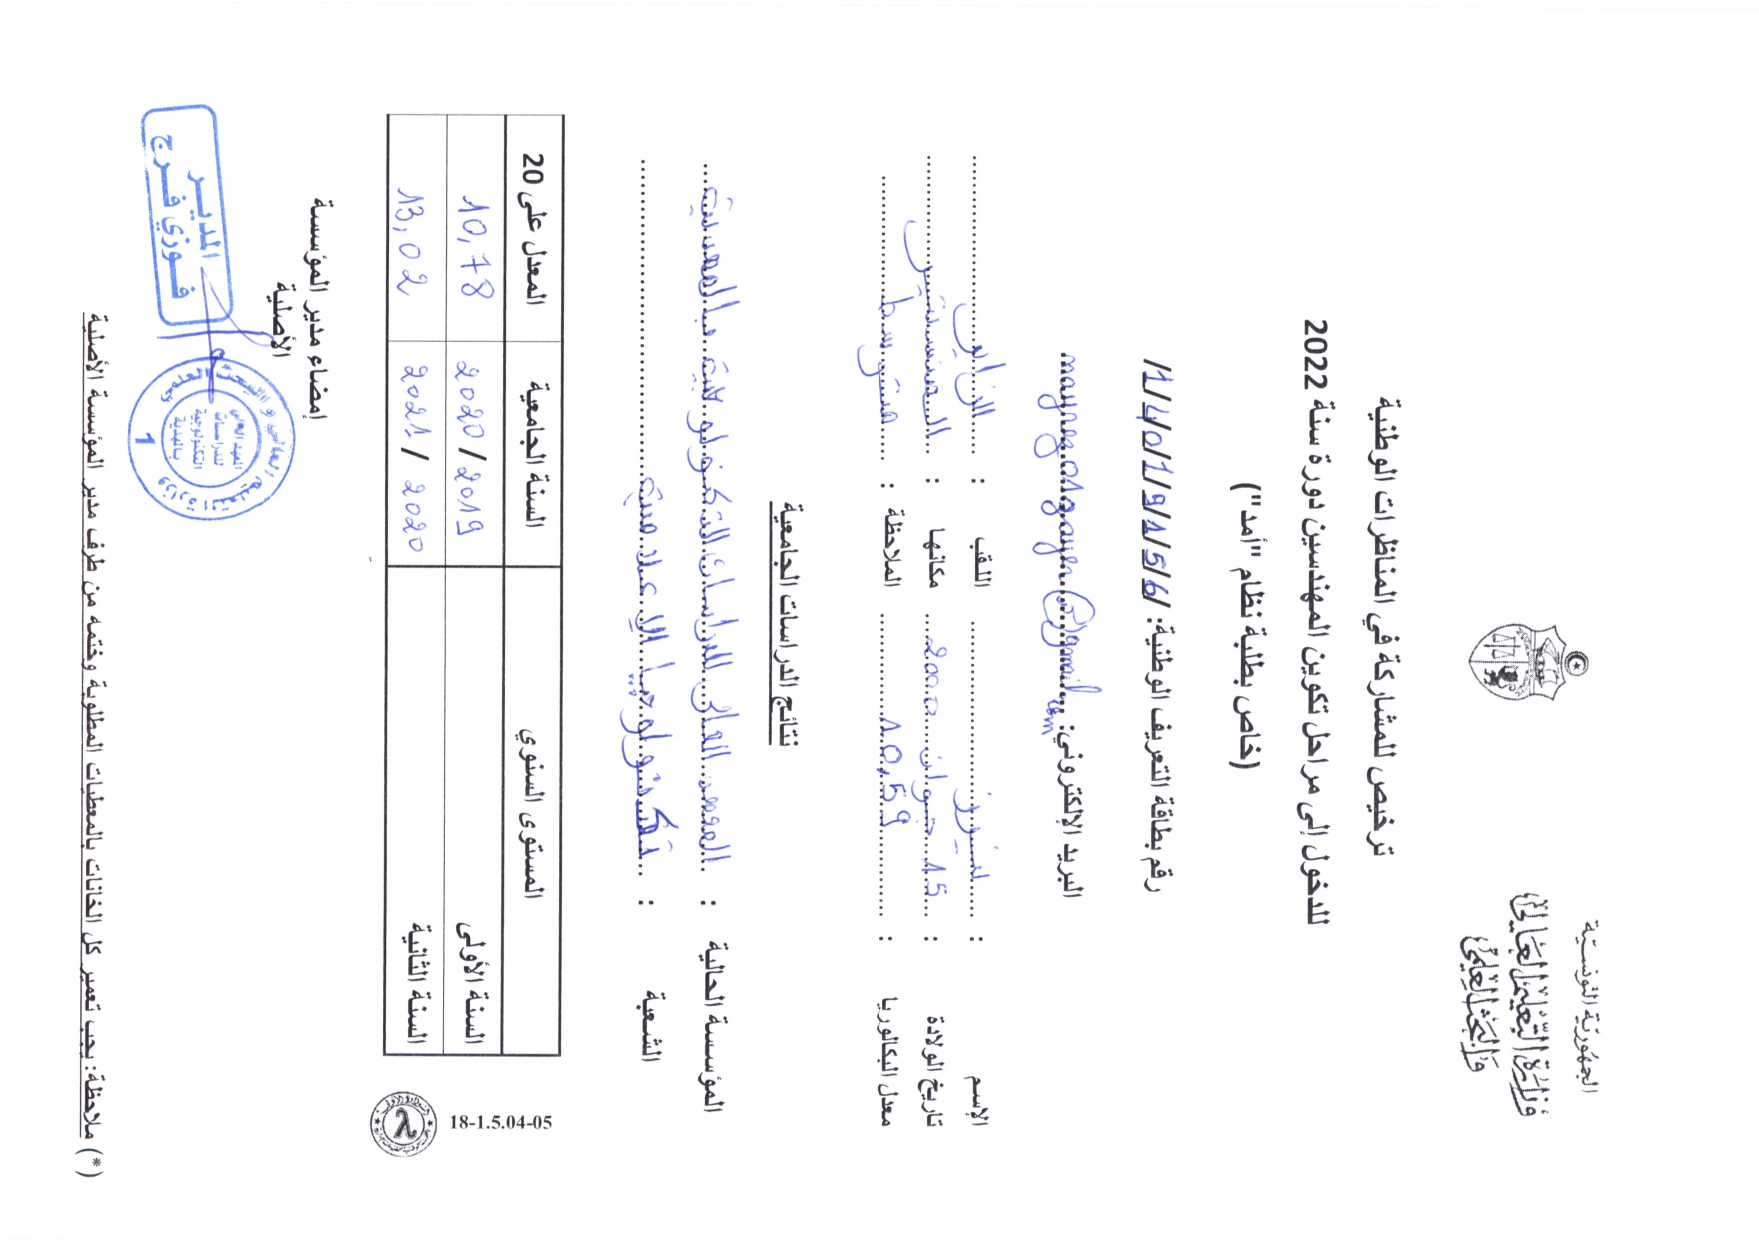 الجمهورية التونسية
وزارة التعليم العالي
والبحث العلمي
ترخيص للمشاركة في المناظرات الوطنية
للدخول إلى مراحل تكوين المهندسين دورة سنة 2022
(خاص بطلبة نظام "أمد")
رقم بطاقة التعريف الوطنية: /1/4/0/1/9/1/5/6/
البريد الإلكتروني: @gmail.com
الإسم : اللقب : الزاير
تاريخ الولادة : 15 جوان 2000 مكانها : المنستير
معدل البكالوريا : 10,59 الملاحظة : متوسط
نتائج الدراسات الجامعية
المؤسسة الحالية : المعهد العالي للدراسات التكنولوجية بالمهدية
الشعبة : تكنولوجيا الإعلامية
المستوى السنوي السنة الجامعية المعدل على 20
السنة الأولى 2020/2019 10,78
السنة الثانية 2021/2020 13,02
18-1.5.04-05
إمضاء مدير المؤسسة
الأصلية
المدير
فوزي فرج
وزارة التعليم العالي و البحث العلمي
المعهد العالي
للدراسات
التكنولوجية
بالمهدية
1
(*) ملاحظة: يجب تعمير كل الخانات بالمعطيات المطلوبة وختمه من طرف مدير المؤسسة الأصلية